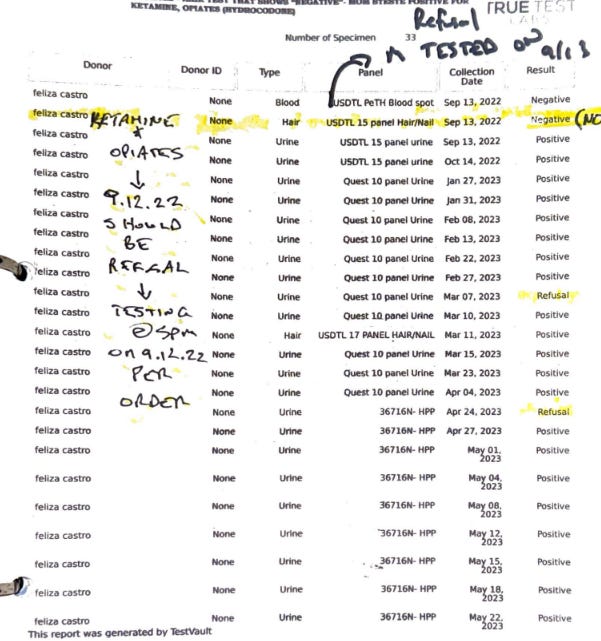 KETAMINE, OPIATES (HYDROCODONE)
TRUE TEST
LABS
Refusal
Number of Specimen 33
TESTED ON 9/13
Donor Donor ID Type Panel Collection Date Result
feliza castro None Blood USDTL PeTH Blood spot Sep 13, 2022 Negative
feliza castro None Hair USDTL 15 panel Hair/Nail Sep 13, 2022 Negative (NO
feliza castro None Urine USDTL 15 panel urine Sep 13, 2022 Positive
feliza castro None Urine USDTL 15 panel urine Oct 14, 2022 Positive
feliza castro None Urine Quest 10 panel Urine Jan 27, 2023 Positive
feliza castro None Urine Quest 10 panel Urine Jan 31, 2023 Positive
feliza castro None Urine Quest 10 panel Urine Feb 08, 2023 Positive
feliza castro None Urine Quest 10 panel Urine Feb 13, 2023 Positive
feliza castro None Urine Quest 10 panel Urine Feb 22, 2023 Positive
feliza castro None Urine Quest 10 panel Urine Feb 27, 2023 Positive
feliza castro None Urine Quest 10 panel Urine Mar 07, 2023 Refusal
feliza castro None Urine Quest 10 panel Urine Mar 10, 2023 Positive
feliza castro None Hair USDTL 17 PANEL HAIR/NAIL Mar 11, 2023 Positive
feliza castro None Urine Quest 10 panel Urine Mar 15, 2023 Positive
feliza castro None Urine Quest 10 panel Urine Mar 23, 2023 Positive
feliza castro None Urine Quest 10 panel Urine Apr 04, 2023 Positive
feliza castro None Urine 36716N- HPP Apr 24, 2023 Refusal
feliza castro None Urine 36716N- HPP Apr 27, 2023 Positive
feliza castro None Urine 36716N- HPP May 01, 2023 Positive
feliza castro None Urine 36716N- HPP May 04, 2023 Positive
feliza castro None Urine 36716N- HPP May 08, 2023 Positive
feliza castro None Urine 36716N- HPP May 12, 2023 Positive
feliza castro None Urine 36716N- HPP May 15, 2023 Positive
feliza castro None Urine 36716N- HPP May 18, 2023 Positive
feliza castro None Urine 36716N- HPP May 22, 2023 Positive
KETAMINE
OPIATES
9.12.22
SHOULD
BE
REFUAL
TESTING
@5pm
on 9.12.22
PER
ORDER
This report was generated by TestVault